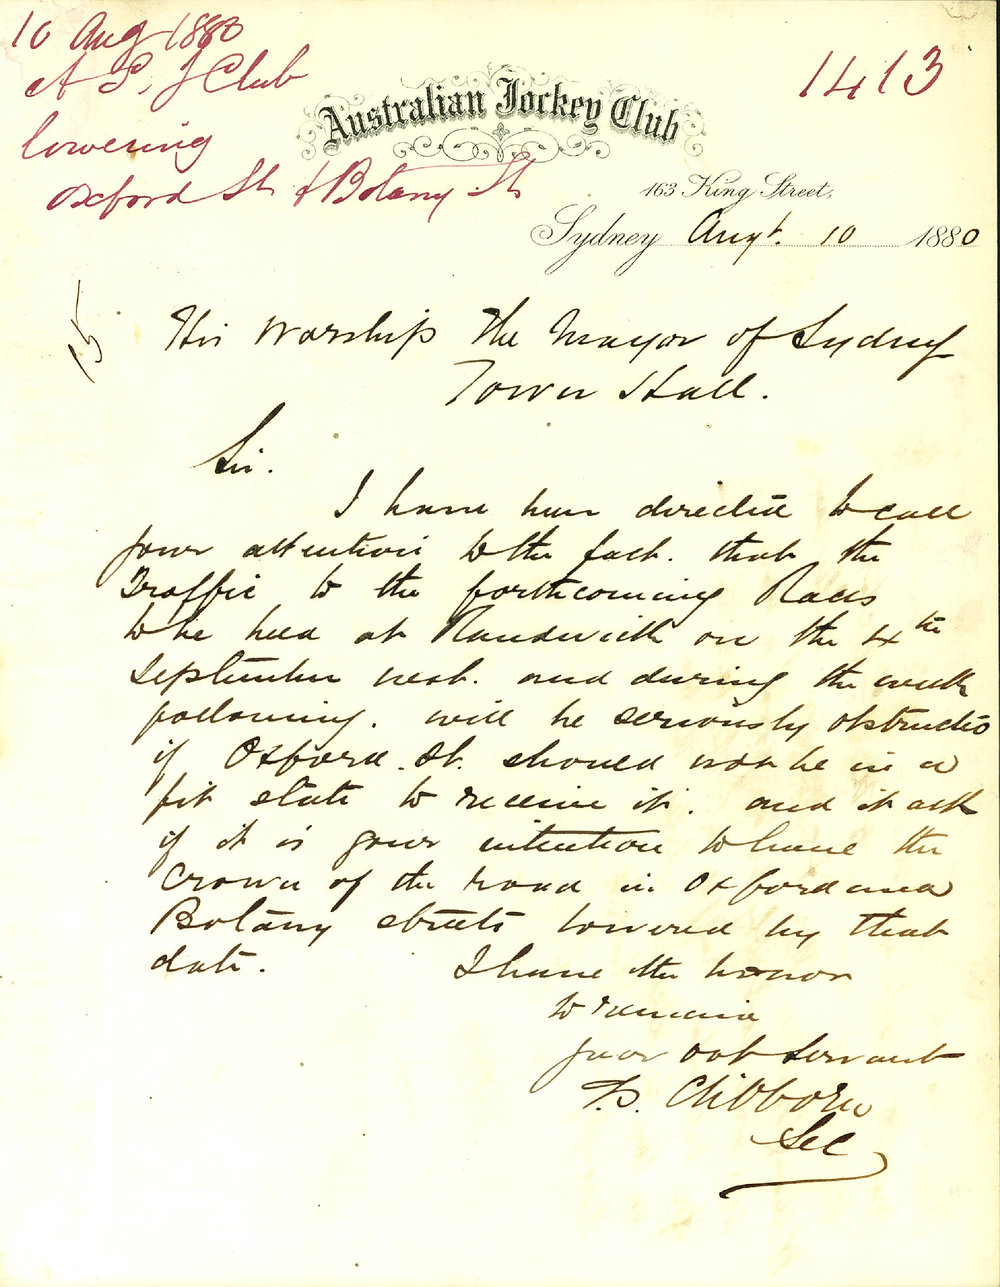 10 Aug 1880
A
J Club
lowering
Oxford St & Botany St
1413
Australian Jockey Club
163 King Street,
Sydney Augt. 10 1880
15
His Worship The Mayor of Sydney
Town Hall.
Sir.
I have been directed to call
your attention to the fact. that the
Traffic to the forthcoming Races
to be held at Randwick on the 4th
September next. and during the week
following. will be seriously obstructed
if Oxford. St. should not be in a
fit state to receive it. and to ask
if it is your intention to have the
Crown of the road in Oxford and
Botany streets lowered by that
date.
I have the honor
to remain
your obt Servant
T. S. Clibborn
Sec